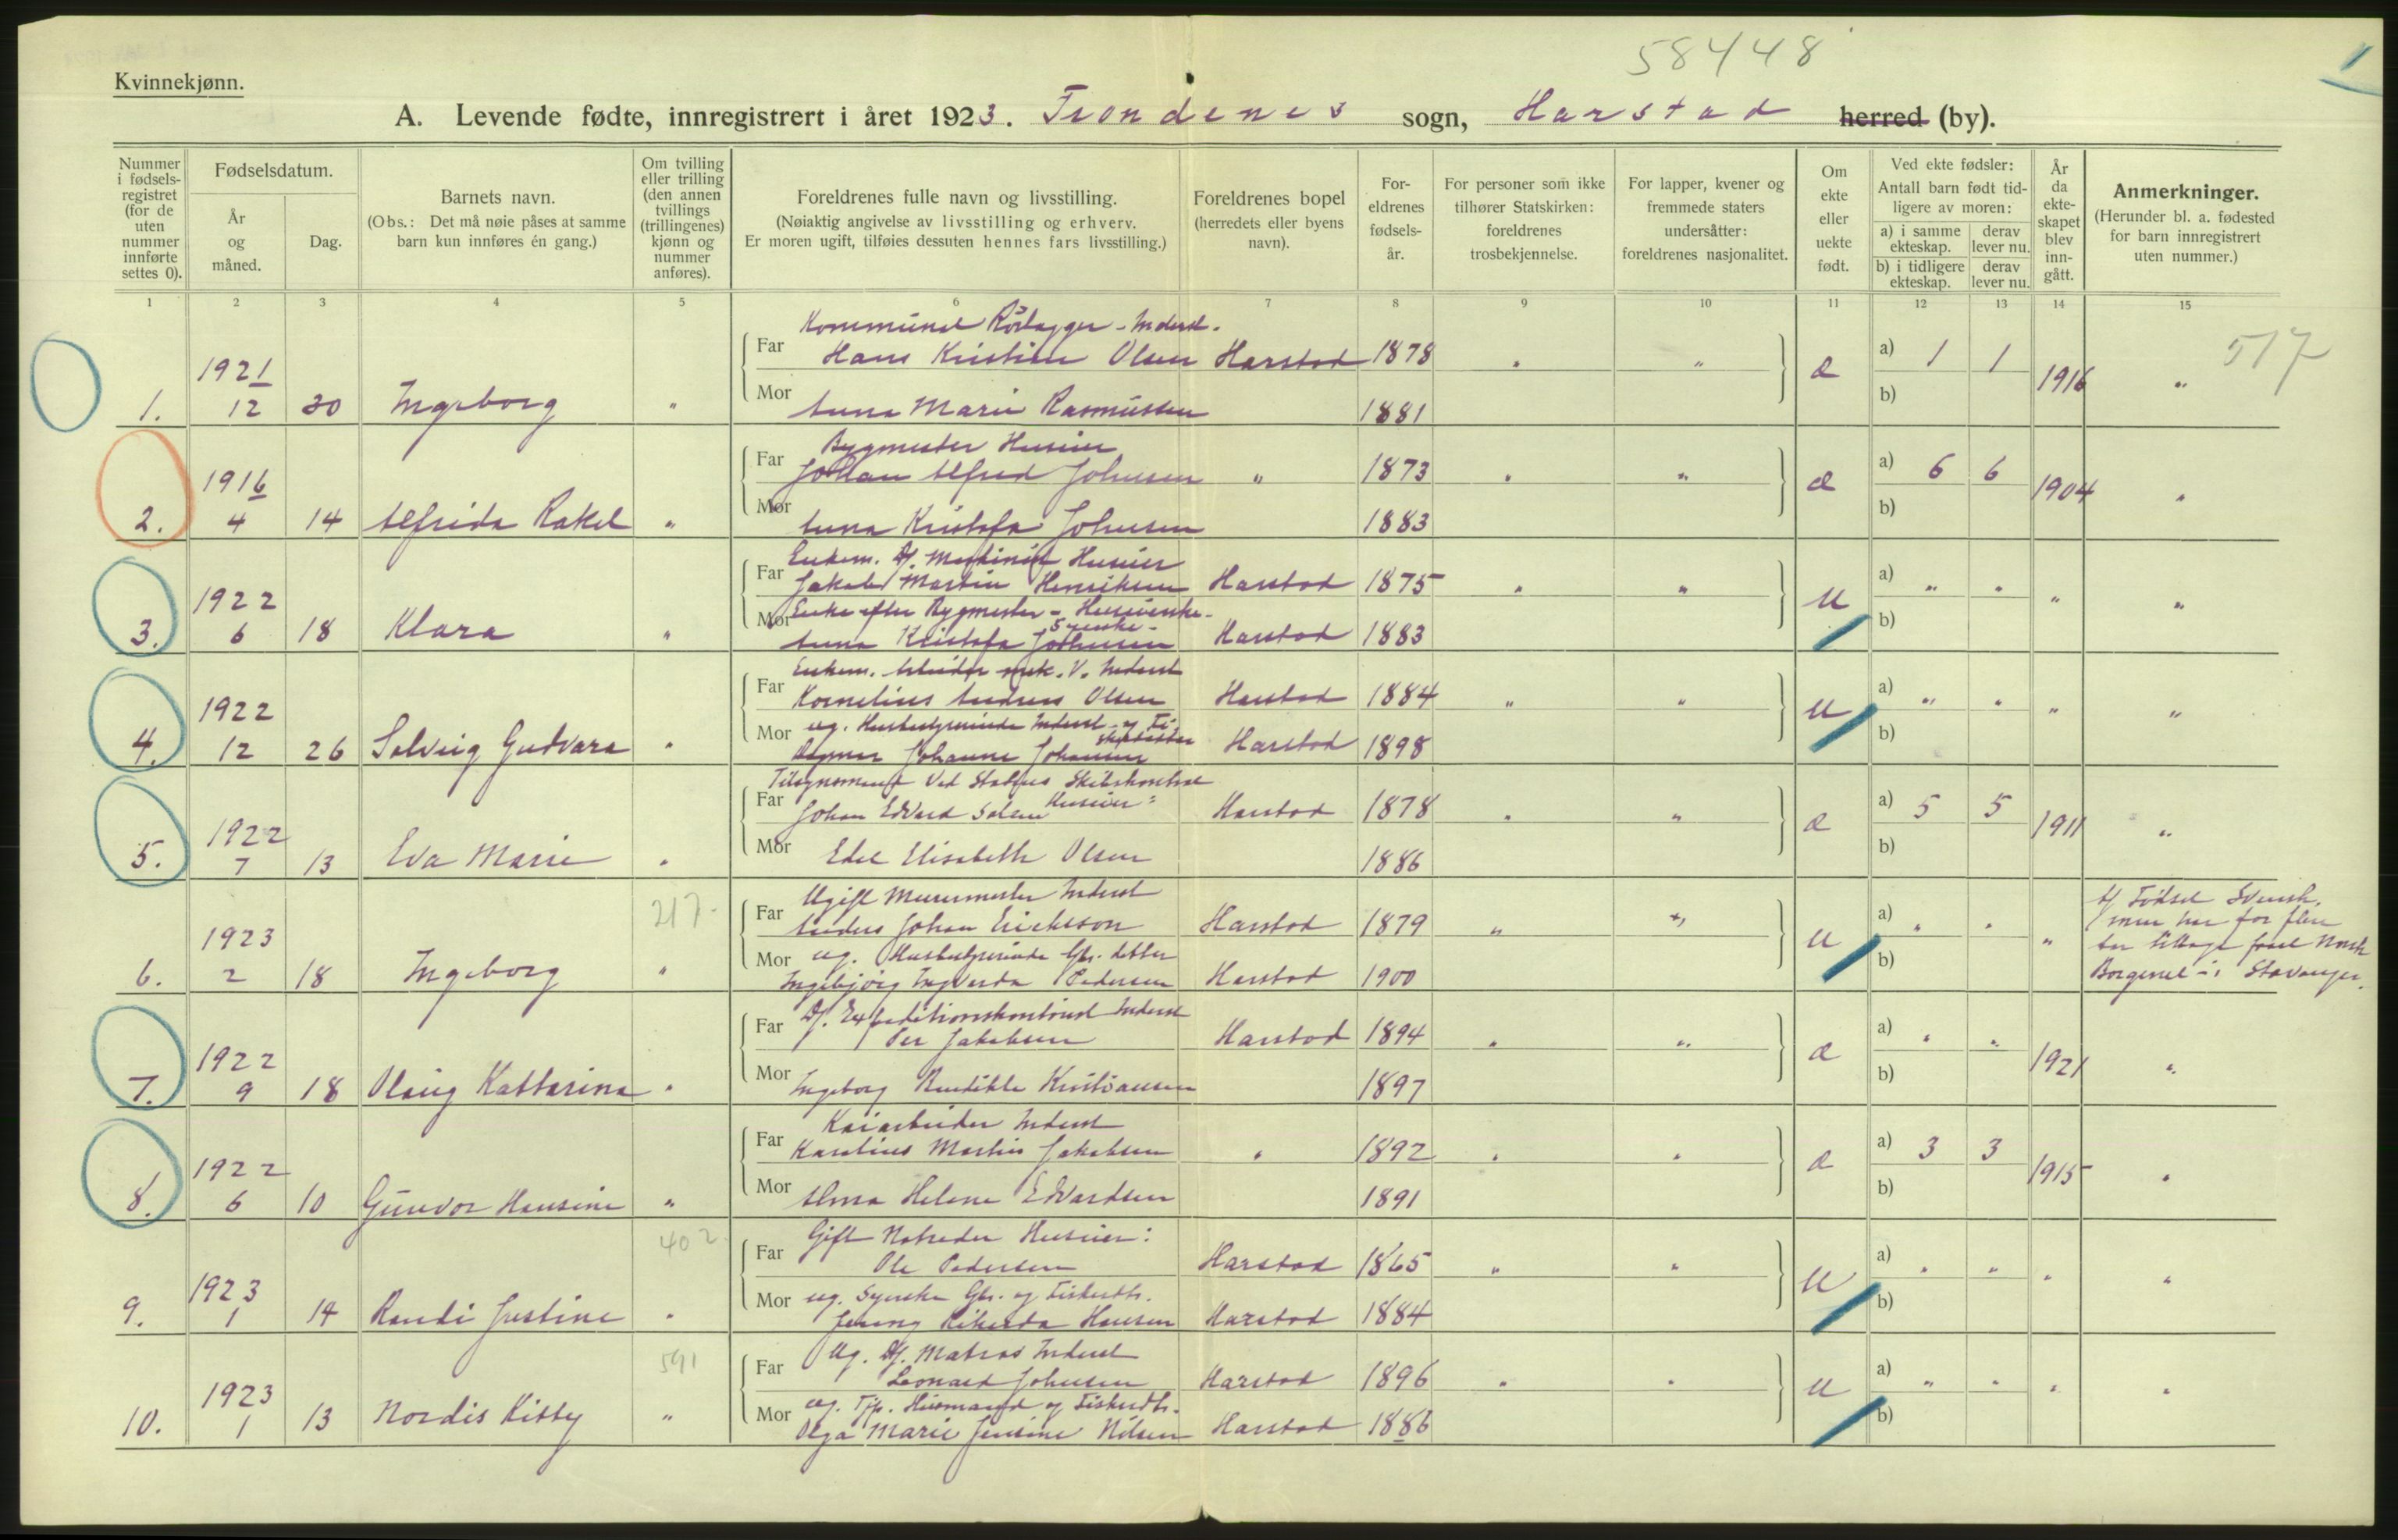 58448
1
Kvinnekjønn.
A. Levende fødte, innregistrert i året 1923. Trondenes sogn, Harstad herred (by).
Nummer i fødsels-registret (for de uten nummer innførte settes 0).
Fødselsdatum.
År og måned.
Dag.
Barnets navn.
(Obs.: Det må nøie påses at samme barn kun innføres én gang.)
Om tvilling eller trilling (den annen tvillings (trillingenes) kjønn og nummer anføres).
Foreldrenes fulle navn og livsstilling.
(Nøiaktig angivelse av livsstilling og erhverv.
Er moren ugift, tilføies dessuten hennes fars livsstilling.)
Foreldrenes bopel (herredets eller byens navn).
For-eldrenes fødsels-år.
For personer som ikke tilhører Statskirken: foreldrenes trosbekjennelse.
For lapper, kvener og fremmede staters undersåtter: foreldrenes nasjonalitet.
Om ekte eller uekte født.
Ved ekte fødsler:
Antall barn født tid-ligere av moren:
a) i samme ekteskap.
derav lever nu.
b) i tidligere ekteskap.
derav lever nu.
År da ekte-skapet blev inn-gått.
Anmerkninger.
(Herunder bl. a. fødested for barn innregistrert uten nummer.)
1 2 3 4 5 6 7 8 9 10 11 12 13 14 15
Far Hans Kristian Olsen Harstad 1878 " " a) 1 1 517
1. 1921 12 30 Ingeborg " Mor Anna Marie Rasmussen 1881 Æ b) 1916 "
Bygmester Huseier
Far Johan Alfred Johnsen " 1873 " " a) 6 6
2. 1916 4 14 Alfrida Rakel " Mor Anna Kristofa Johnsen 1883 Æ b) 1904 "
Enkem. Df. Maskinist Huseier
Far Jakob Martin Henriksen Harstad 1875 " " a) " "
Enke efter Bygmester - Husierske -
Syerske -
3. 1922 6 18 Klara " Mor Anna Kristofa Johnsen Harstad 1883 U b) " "
Enkem. Arbeider mek. V. Inderst
Far Kornelius Andreas Olsen Harstad 1884 " " a) " "
4. 1922 12 26 Solveig Gudvara " Mor ug. Husbestyrerinde Inderst
Dagmar Johanne Johansen Harstad 1898 U b) " "
Ved Statens Skibskontrol
Huseier:
Far Johan Edvard Harstad 1878 " " a) 5 5
5. 1922 7 13 Eva Marie " Mor Edel Elisabeth Olsen 1886 Æ b) 1911 "
217
Ugift Murermester Inderst
Far Anders Johan Erickson Harstad 1879 " a) " "
Af Fødsel Svensk.
men har for flere
Aar tilbage
Borgerret i Stavanger.
6. 1923 2 18 Ingeborg " Mor ug. Husbestyrerinde Gbr. datter
Ingebjörg Ingvarda Pedersen Harstad 1900 U b) "
Df. Expeditionskontorist Inderst
Far Per Jakobsen Harstad 1894 " " a) " "
7. 1922 9 18 Olaug Kattarina " Mor Ingeborg Kristiansen 1897 Æ b) 1921 "
Kaiarbeider Inderst
Far Karolius Martin Jakobsen " 1892 " " a) 3 3
8. 1922 6 10 Gunvor Hansine " Mor Alma Helene Edvardsen 1891 Æ b) 1915 "
402
Gift Huseier:
Far Ole Pedersen Harstad 1865 " " a) " "
9. 1923 1 14 Randi Justine " Mor ug. Syerske Gbr. og Fiskerdtr.
Rikarda Hansen Harstad 1884 U b) " "
591
Ug. Df. Matros Inderst
Far Leonard Johnsen Harstad 1896 " " a) " "
10. 1923 1 13 Nordis Kitty " Mor ug. Tjp. Husmand og Fiskerdtr.
Olga Marie Jensine Nilsen Harstad 1886 U b) " "